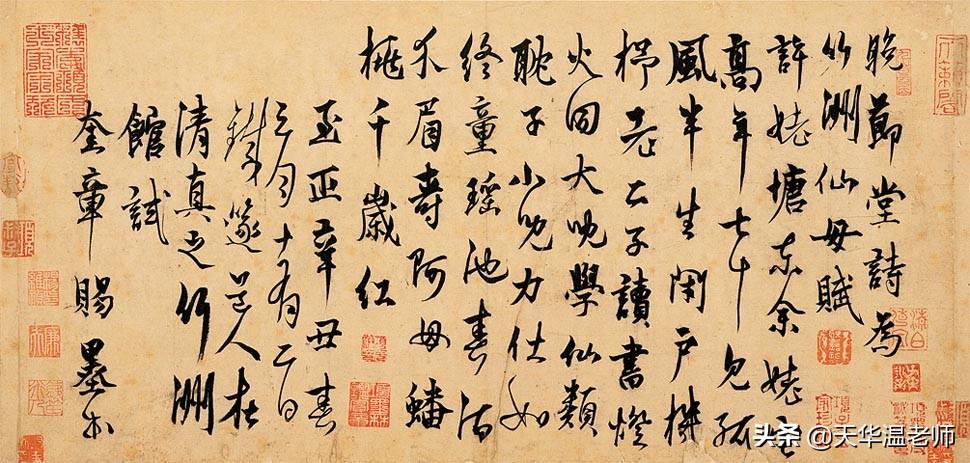 晚節堂詩為
竹洲仙母賦
許姥塘東余姥
高年七十見孤
風半生閉戶機
杼老二子讀書燈
火同大兒學仙類
耽子小兒力仕如
終童瑤池春酒
介眉壽阿母蟠
桃千歲紅
至正辛丑春
三月十有二日
鐵篴道人在
清真之竹洲
館試
奎章賜墨書
头条 @天华温老师